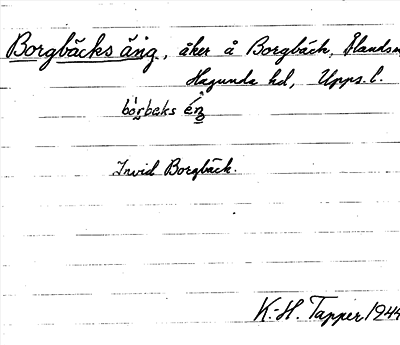 Borgbäcks äng, åker å Borgbäck,
Hagunda hd, Upps. l.
Invid Borgbäck.
K.-H. Tapper 1944